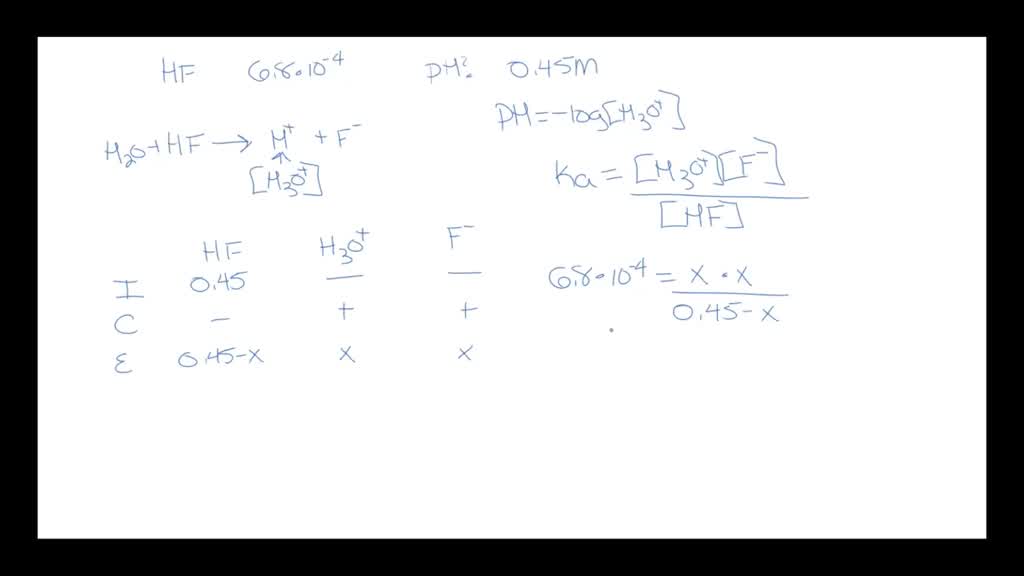 HF 6.8·10⁻⁴ pH? 0.45M
pH=-log[H₃O⁺]
H₂O+HF → H⁺ + F⁻
[H₃O⁺]
Ka = [H₃O⁺][F⁻]
[HF]
HF H₃O⁺ F⁻
I 0.45 — —
C - + +
E 0.45-x x x
6.8·10⁻⁴ = x · x
0.45-x